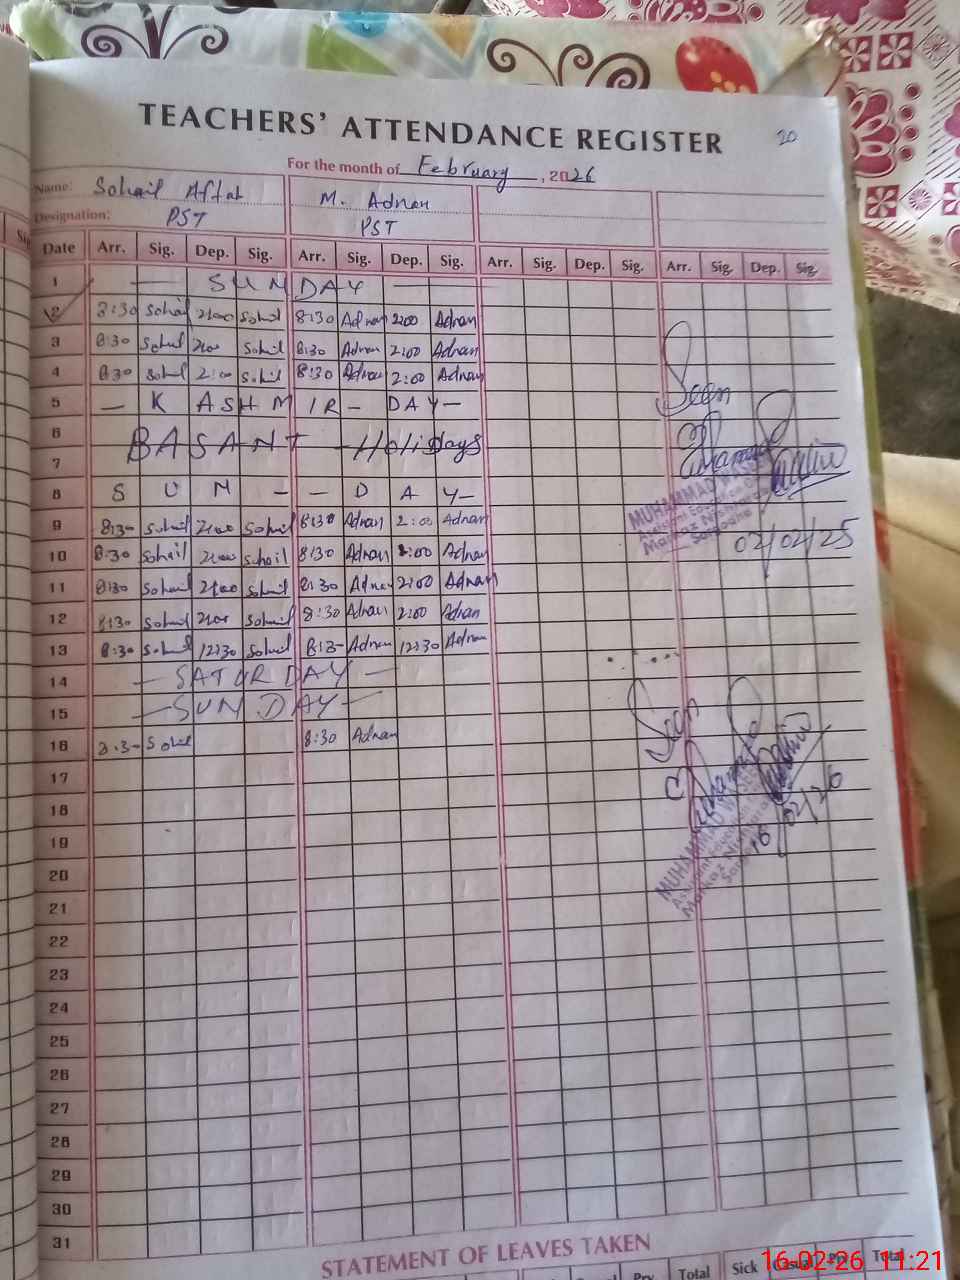 TEACHERS' ATTENDANCE REGISTER 20
For the month of February, 2026
Name: Sohail Aftab M. Adnan
Designation: PST PST
Date Arr. Sig. Dep. Sig. Arr. Sig. Dep. Sig. Arr. Sig. Dep. Sig. Arr. Sig. Dep. Sig.
1 — SUNDAY —
2 8:30 Sohail 2:00 Sohail 8:30 Adnan 2:00 Adnan
3 8:30 Sohail 2:00 Sohail 8:30 Adnan 2:00 Adnan
4 8:30 Sohail 2:00 Sohail 8:30 Adnan 2:00 Adnan
5 — KASHMIR — DAY —
6 BASANT — Holidays
7
8 SUN — — DAY —
9 8:30 Sohail 2:00 Sohail 8:30 Adnan 2:00 Adnan
10 8:30 Sohail 2:00 Sohail 8:30 Adnan 2:00 Adnan
11 8:30 Sohail 2:00 Sohail 8:30 Adnan 2:00 Adnan
12 8:30 Sohail 2:00 Sohail 8:30 Adnan 2:00 Adnan
13 8:30 Sohail 12:30 Sohail 8:3- Adnan 12:30 Adnan
14 — SATURDAY —
15 — SUNDAY —
16 8:3- Sohail 8:30 Adnan
17
18
19
20
21
22
23
24
25
26
27
28
29
30
31
Seen
MUHAMMAD
Markaz
02/02/25
Seen
MUHAMMAD
Markaz
16/02/26
STATEMENT OF LEAVES TAKEN
Prv Total Sick Casual Prv Total
16-02-26 11:21